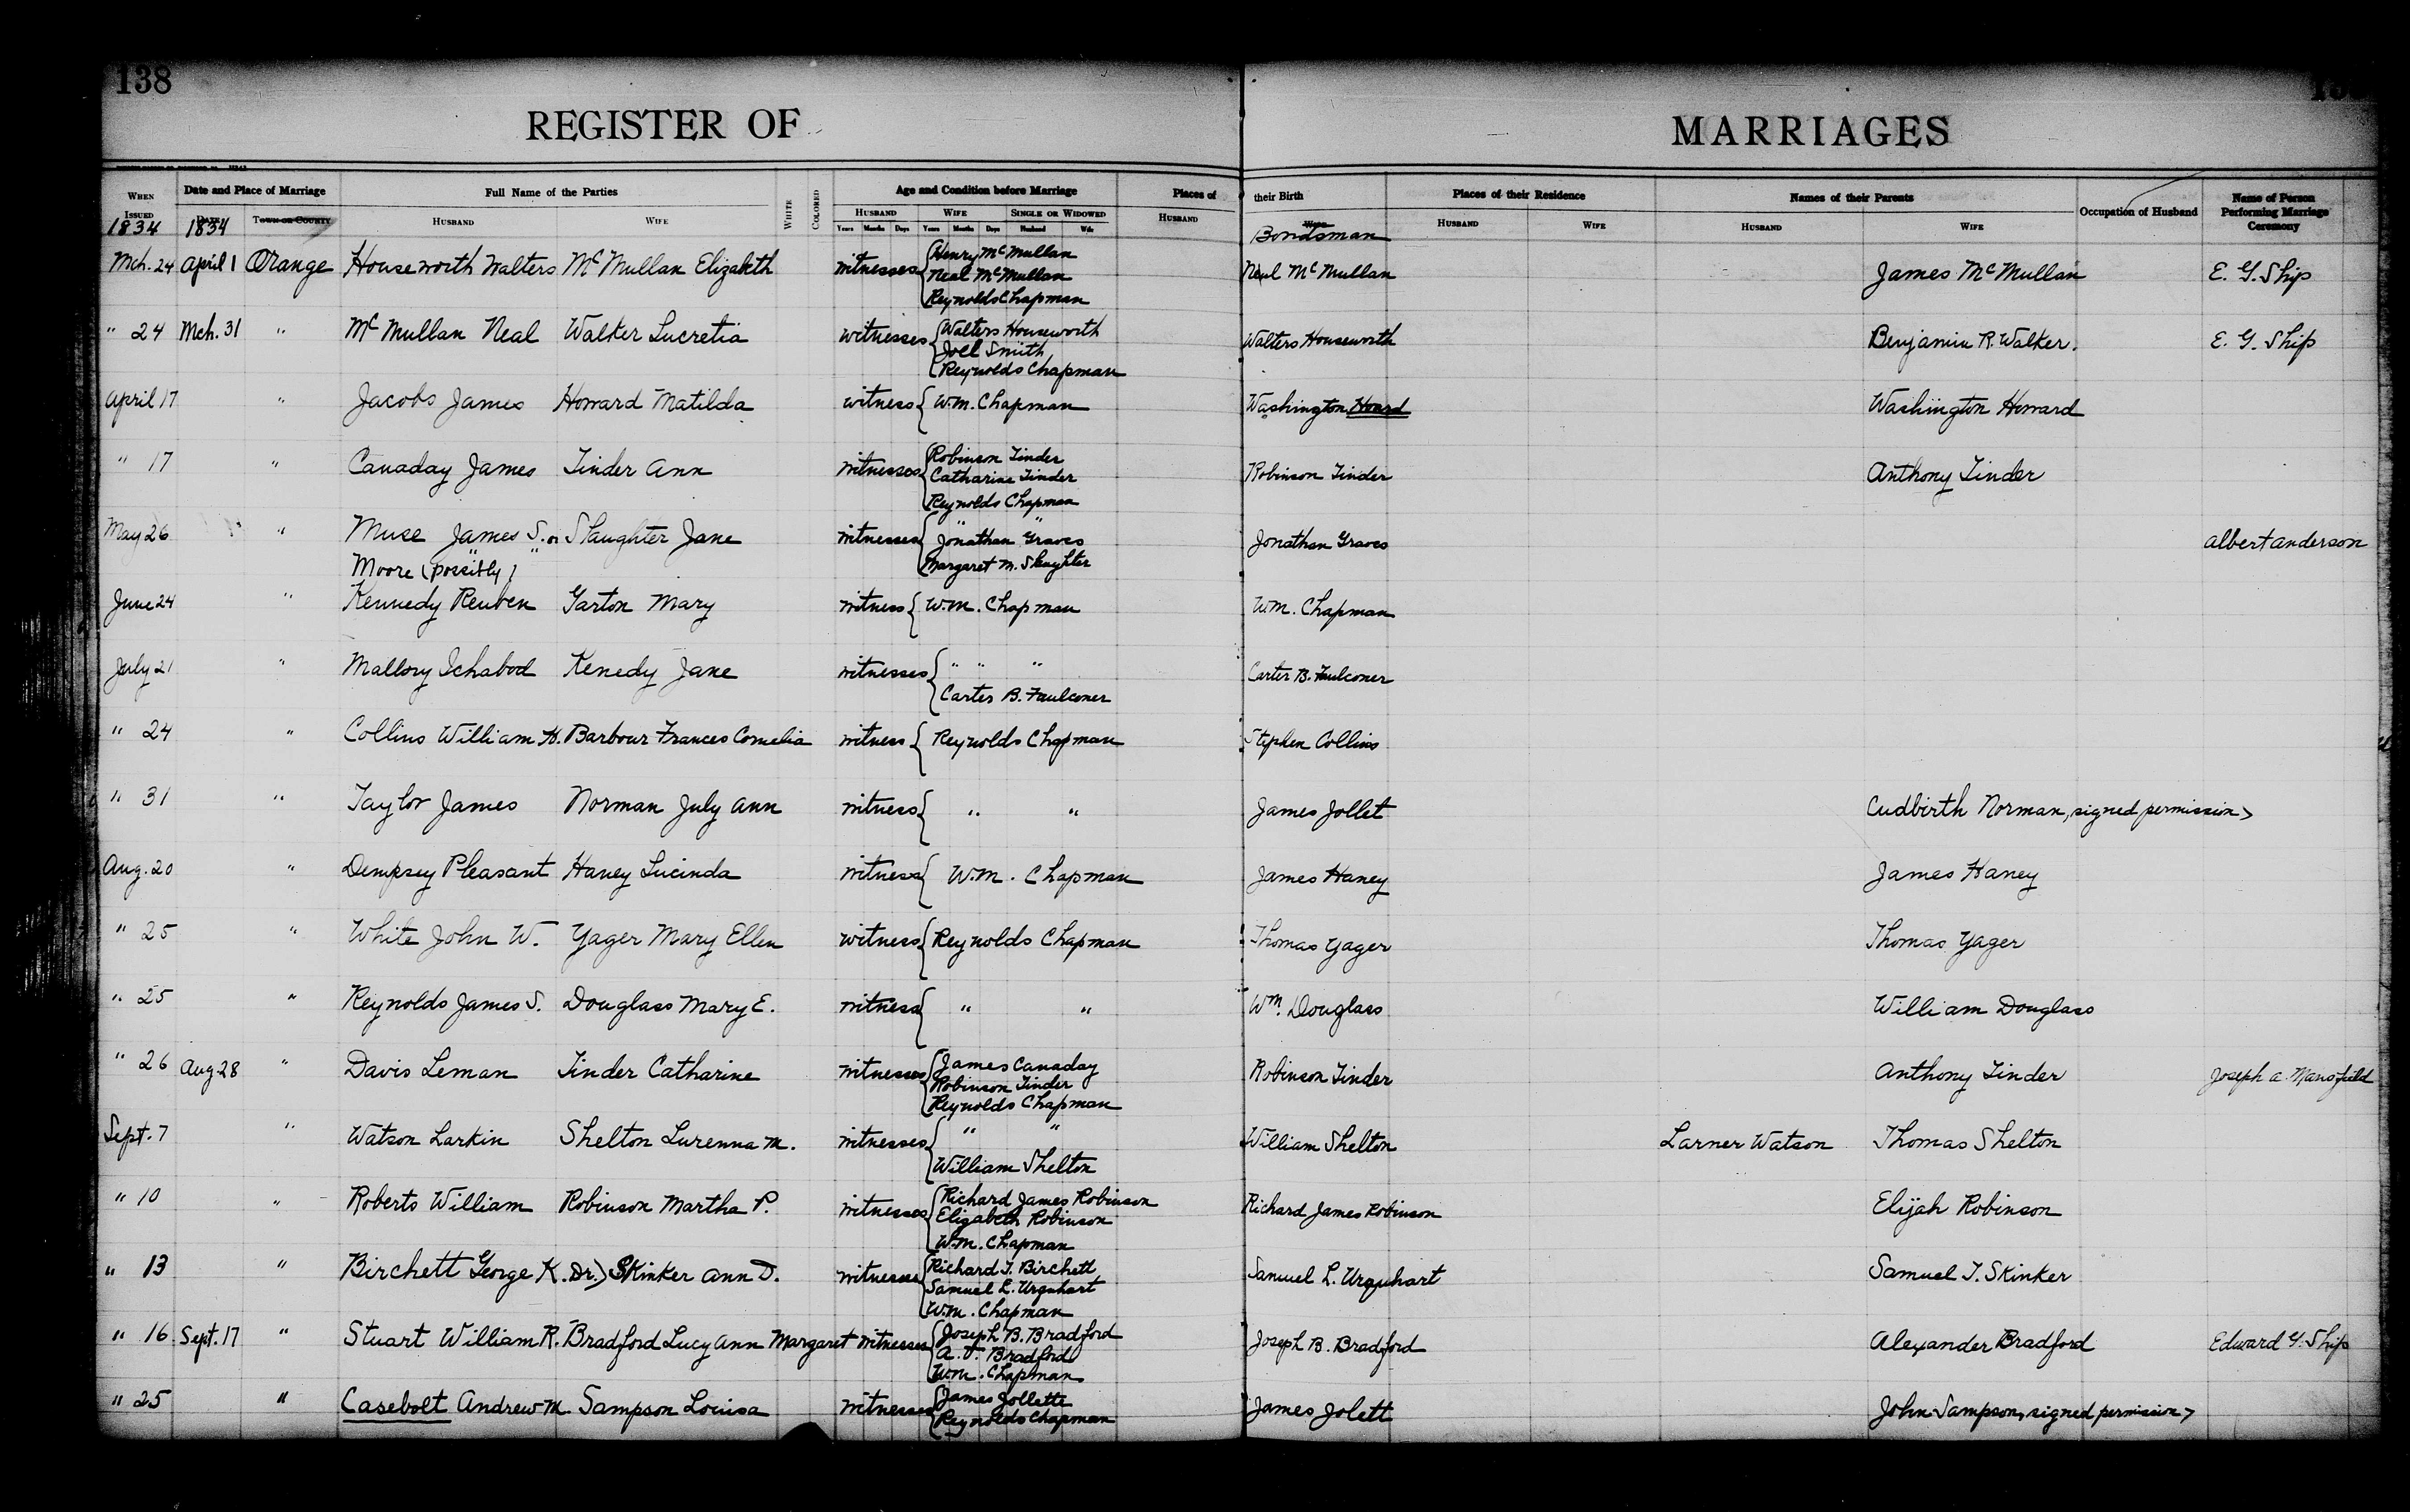 138
REGISTER OF MARRIAGES
When Issued Date and Place of Marriage Full Name of the Parties White Colored Age and Condition before Marriage Places of their Birth Places of their Residence Names of their Parents Occupation of Husband Name of Person Performing Marriage Ceremony
Date Town or County Husband Wife Husband Wife Single or Widowed Husband Wife Husband Wife Husband Wife
Years Months Days Years Months Days Husband Wife
1834 1834 Bondsman
Mch. 24 April 1 Orange Houseworth Walters McMullan Elizabeth witnesses { Henry McMullan Neal McMullan James McMullan E. G. Ship
Neal McMullan
Reynolds Chapman
" 24 Mch. 31 " McMullan Neal Walker Lucretia witnesses { Walters Houseworth Walters Houseworth Benjamin R. Walker. E. G. Ship
Joel Smith
Reynolds Chapman
April 17 " Jacobs James Howard Matilda witness { W.M. Chapman Washington Hoard Washington Howard
" 17 " Canaday James Tinder Ann witnesses { Robinson Tinder Robinson Tinder Anthony Tinder
Catharine Tinder
Reynolds Chapman
May 26 " " Muse James S. or Slaughter Jane witnesses { " " Jonathan Graves Albert Anderson
Jonathan Graves
Moore (possibly) " " Margaret M. Slaughter
June 24 " Kennedy Reuben Garton Mary witness { W.M. Chapman W.M. Chapman
July 21 " Mallory Ichabod Kenedy Jane witnesses { " " " Carter B. Faulconer
Carter B. Faulconer
" 24 " Collins William H. Barbour Frances Cornelia witness { Reynolds Chapman Stephen Collins
" 31 " Taylor James Norman July Ann witness { " " James Jollet Cudbirth Norman, signed permission>
Aug. 20 " Dempsey Pleasant Haney Lucinda witness { W.M. Chapman James Haney James Haney
" 25 " White John W. Yager Mary Ellen witness { Reynolds Chapman Thomas Yager Thomas Yager
" 25 " Reynolds James S. Douglass Mary E. witness { " " Wm. Douglass William Douglass
" 26 Aug 28 " Davis Leman Tinder Catharine witnesses { James Canaday Robinson Tinder Anthony Tinder Joseph A. Mansfield
Robinson Tinder
Reynolds Chapman
Sept. 7 " Watson Larkin Shelton Lurenna M. witnesses { " " William Shelton Larner Watson Thomas Shelton
William Shelton
" 10 " Roberts William Robinson Martha P. witnesses { Richard James Robinson Richard James Robinson Elijah Robinson
Elizabeth Robinson
W.M. Chapman
" 13 " Birchett George K. Dr.) Skinker Ann D. witnesses { Richard T. Birchett Samuel L. Urquhart Samuel T. Skinker
Samuel L. Urquhart
W.M. Chapman
" 16 Sept. 17 " Stuart William R. Bradford Lucy Ann Margaret witnesses { Joseph B. Bradford Joseph B. Bradford Alexander Bradford Edward G. Ship
A. V. Bradford
W.M. Chapman
" 25 " Casebolt Andrew M. Sampson Louisa witnesses { James Jollette James Jolett John Sampson, signed permission>
Reynolds Chapman